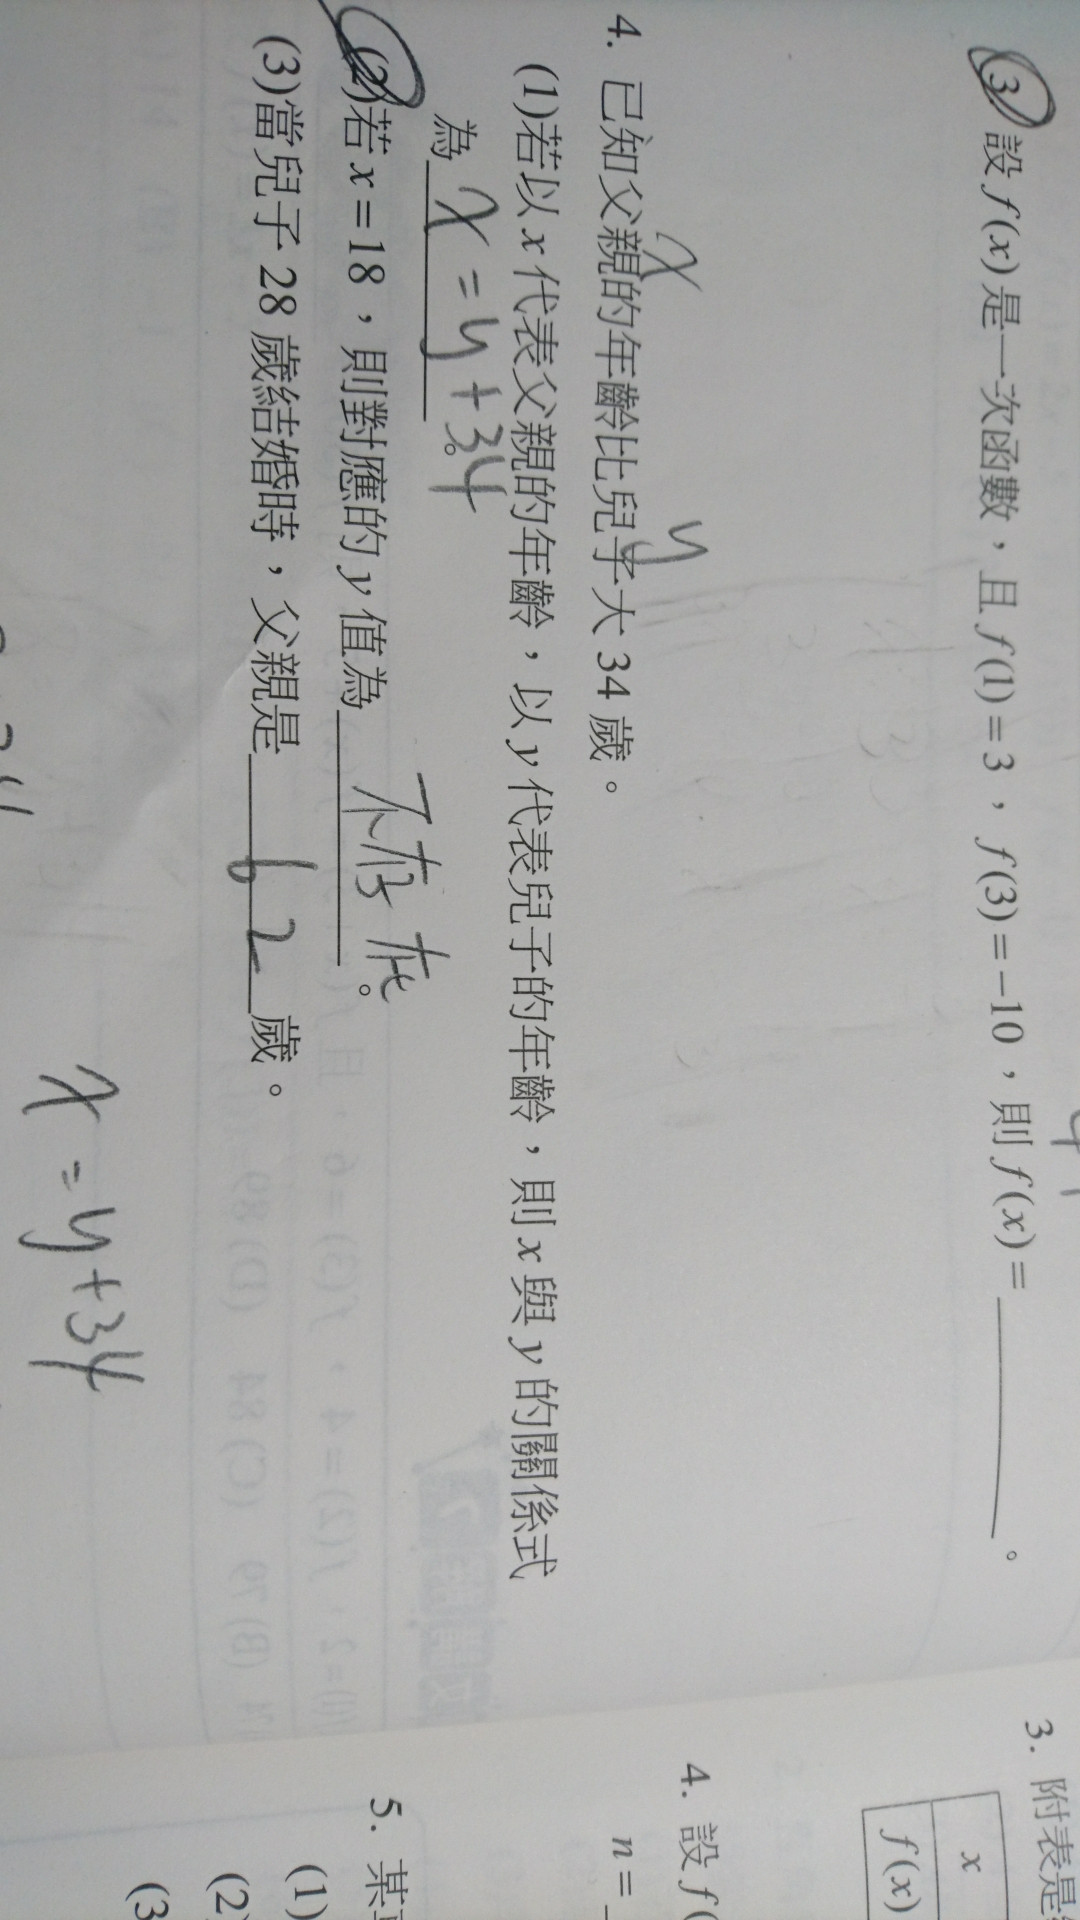 (3) 設 f(x) 是一次函數，且 f(1)=3，f(3)=-10，則 f(x)= ＿＿＿。
4. 已知父親的年齡比兒子大 34 歲。
x
y
(1)若以 x 代表父親的年齡，以 y 代表兒子的年齡，則 x 與 y 的關係式
為 x=y+34。
(2)若 x=18，則對應的 y 值為 不存在。
(3)當兒子 28 歲結婚時，父親是 62 歲。
x=y+34
3. 附表是
x
f(x)
4. 設 f(
n=
5. 某
(1)
(2)
(3